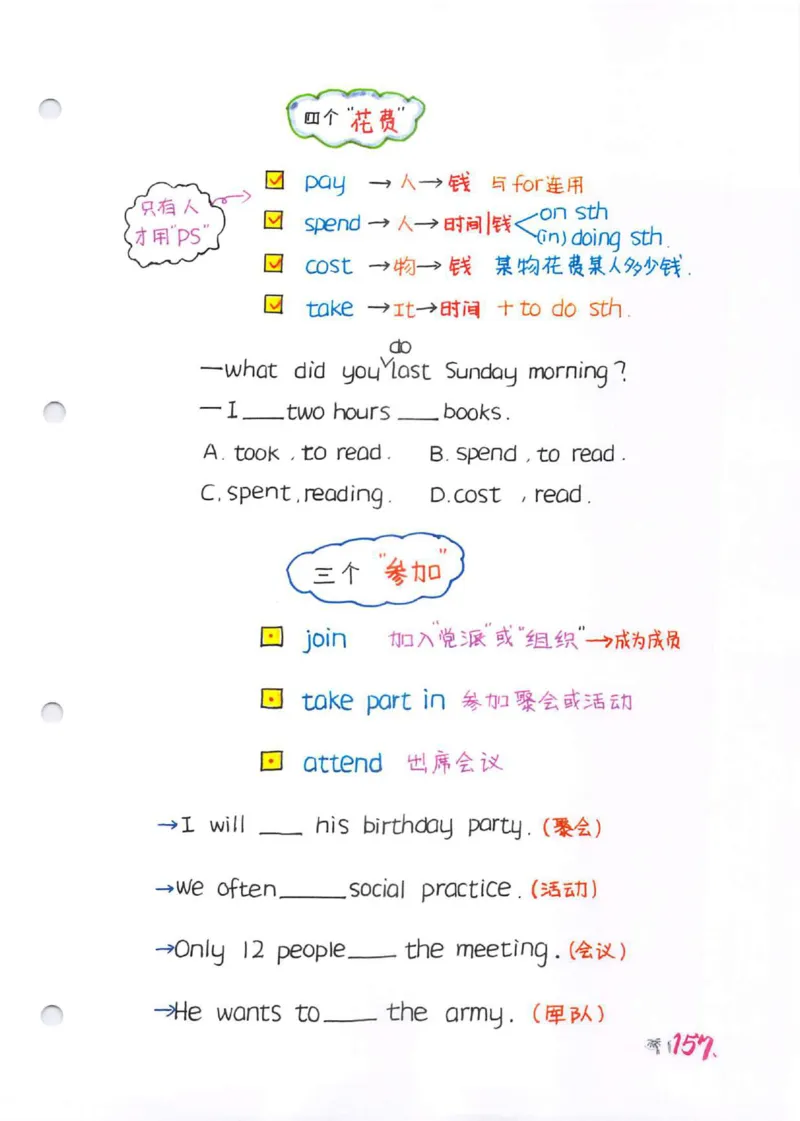 四个"花费"
只有人
才用"PS"
pay → 人 → 钱 与for连用
spend → 人 → 时间|钱 on sth
(in) doing sth.
cost → 物 → 钱 某物花费某人多少钱.
take → It → 时间 + to do sth.
do
—what did you last Sunday morning?
—I ___ two hours ___ books.
A. took , to read. B. spend , to read.
C. spent, reading. D. cost , read.
三个 "参加"
join 加入"党派"或"组织"→成为成员
take part in 参加聚会或活动
attend 出席会议
→I will ___ his birthday party. (聚会)
→we often ___ social practice. (活动)
→Only 12 people ___ the meeting. (会议)
→He wants to ___ the army. (军队)
157